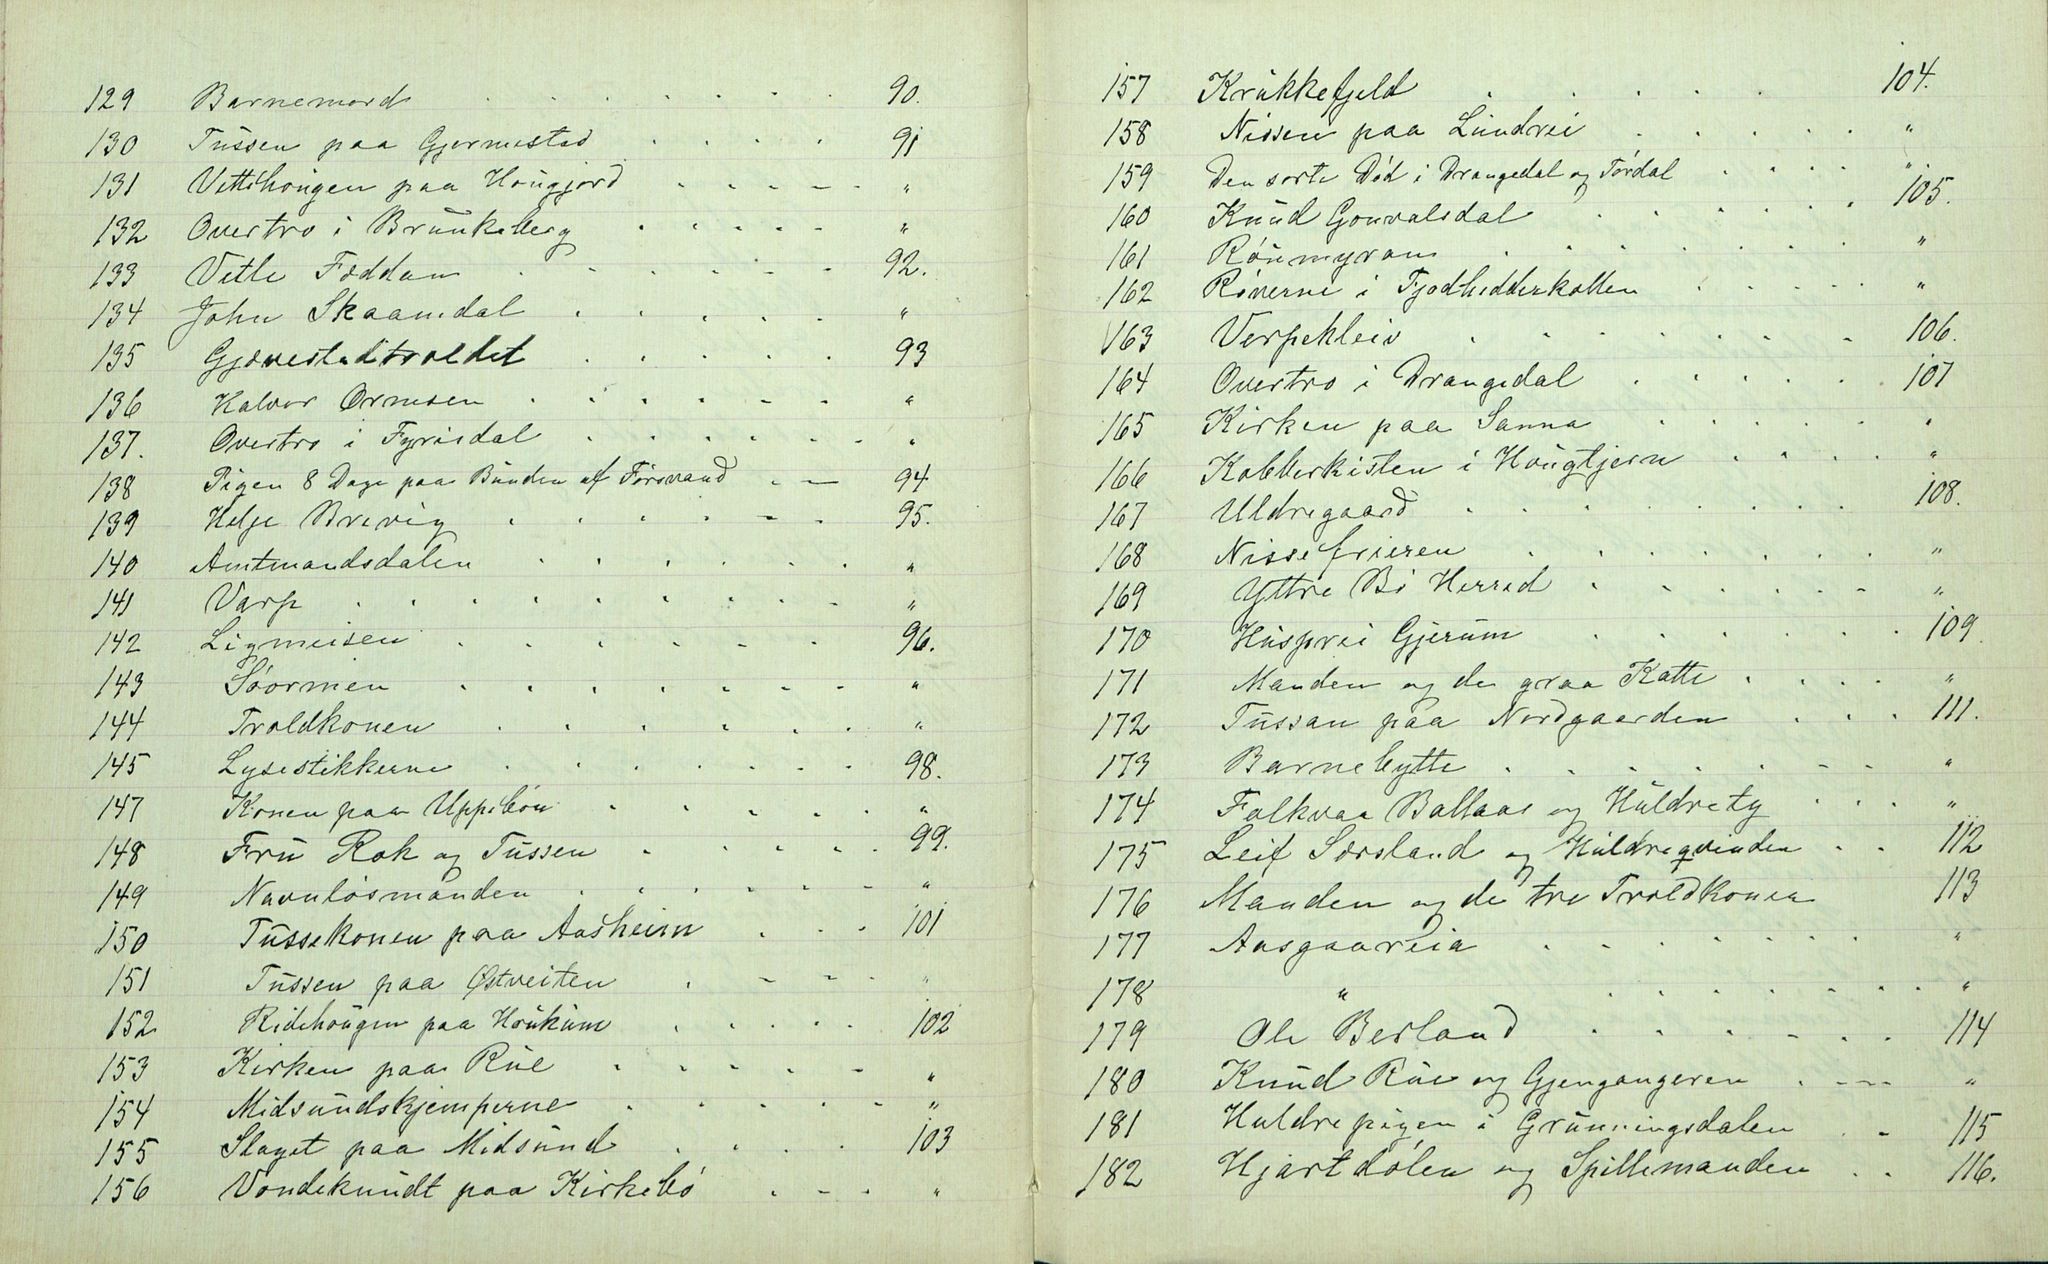 129 Barnemord . . . . . . . 90.
130 Tussen paa Gjermestad . . . . 91
131 Vettehougen paa Hougjord . . . . . "
132 Overtro i Brunkeberg . . . . . "
133 Vetle Føddan . . . . . 92.
134 John Skaamdal . . . . . "
135 Gjævestadtroldet . . . . . 93
136 Halvor Ormsen . . . . . "
137. Overtro i Fyrisdal . . . . . . "
138 Pigen 8 Dage paa Bunden af Førsvand . . 94
139 Helje Brevig . . . . . . 95.
140 Amtmandsdalen . . . . . . "
141 Varp . . . . . . . . . "
142 Ligmeisen . . . . . . 96.
143 Söormen . . . . . . . "
144 Troldkonen . . . . . . "
145 Lysestikkerne . . . . . . 98.
147 Konen paa Uppeböen . . . . . "
148 Fru Rok og Tussen . . . . . 99.
149 Navnlösmanden . . . . . . "
150 Tussekonen paa Aasheim . . . 101
151 Tussen paa Østveiten . . . . "
152 Ridehougen paa Houkum . . . . . 102
153 Kirken paa Rue . . . . . "
154 Midsundskjemperne . . . . . "
155 Slaget paa Midsund . . . . 103
156 Vondeknudt paa Kirkebö . . . . "
157 Krukkefjeld . . . . . 104.
158 Nissen paa Lundvei . . . . . "
159 Den sorte Död i Drangedal og Tördal . . . . "
160 Knud Gonvalsdal . . . . . . 105.
161 Röinmyran . . . . . . . "
162 Röverne i Fjodhedderkollen . . . . . "
163 Verpekleiv . . . . . . 106.
164 Overtro i Drangedal . . . . . 107
165 Kirken paa Sanna . . . . . "
166 Kobberkisten i Hougtjern . . . . "
167 Uldregaard . . . . . . . 108.
168 Nissefrieren . . . . . . "
169 Yttre Bö Herred . . . . . . "
170 Husprei Gjerum . . . . . . 109
171 Manden og de graa Katte . . . . "
172 Tussan paa Nordgaarden . . . 111.
173 Barnebytte . . . . . . . "
174 Folkvaa Ballaas og Huldrety . . . "
175 Leif Sørsland og Huldreqvinden . . 112
176 Manden og de tre Troldkoner 113
177 Aasgaareia . . . . . . "
178 " . . . . . . . . "
179 Ole Berland . . . . . . 114
180 Knud Rue og Gjengangeren . . . . "
181 Huldrepigen i Grunningsdalen . . 115
182 Hjartdölen og Spillemanden . . 116.